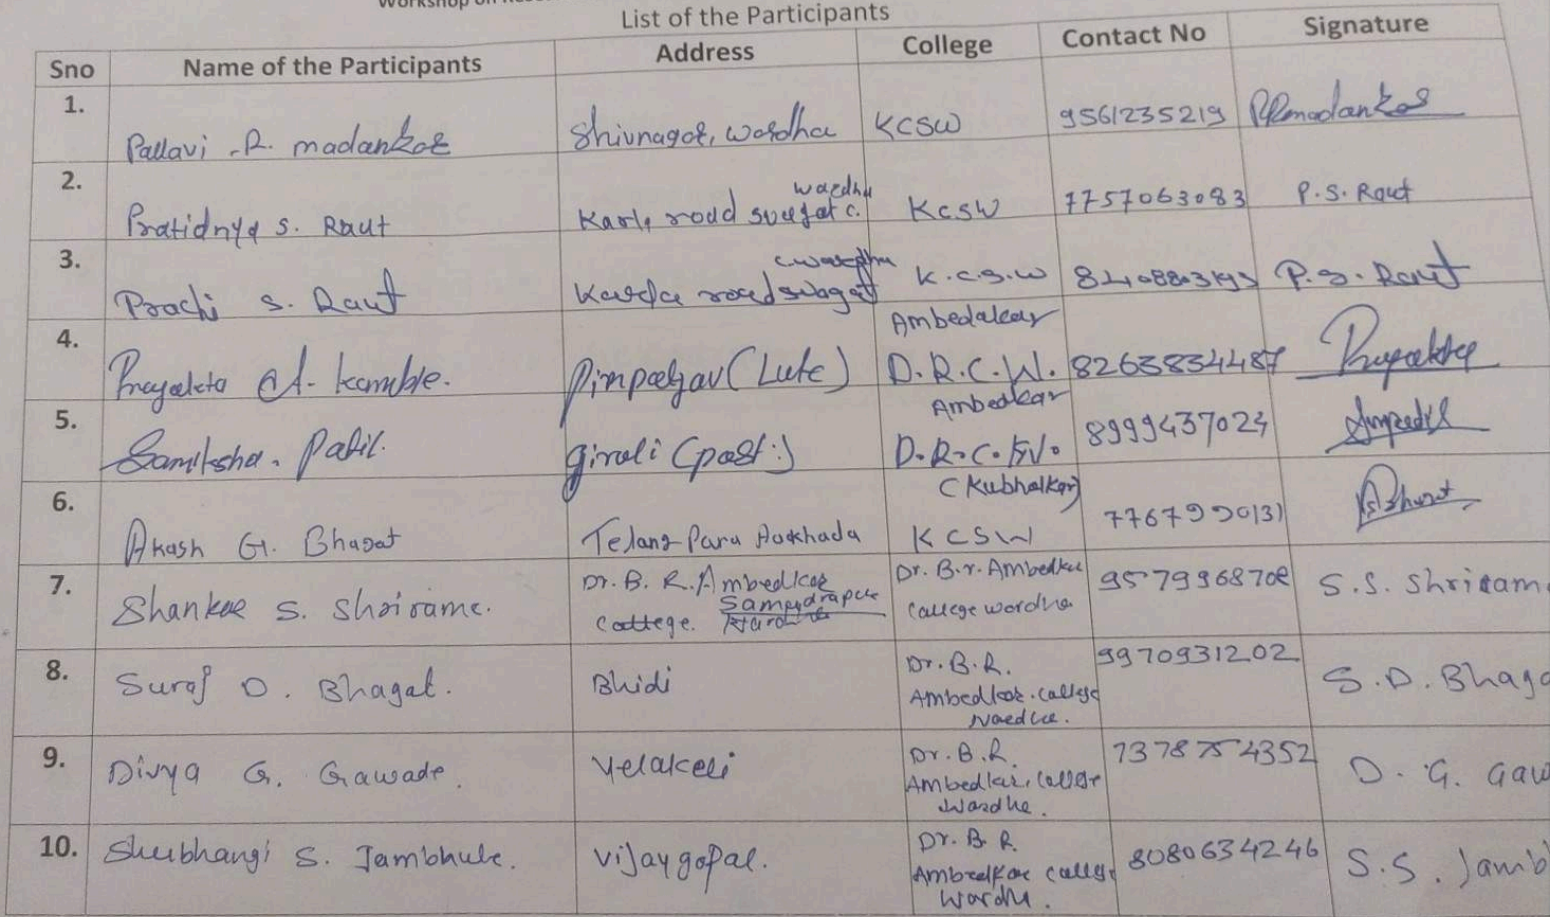 Workshop on
List of the Participants
Sno Name of the Participants Address College Contact No Signature
1. Pallavi .R. madankar Shivnagar, wardha KCSW 9561235219 PRmadankar
2. Pratidnya S. Raut Karla road c. wardha KCSW 7757063083 P.S. Raut
3. Prachi S. Raut Karla road swagat c wardha K.C.S.W P.S. Raut
4. kamble. (Lute) Ambedakar D.R.C.W. 8263834487
5. Samiksha. Patil. giroli (post:) Ambedkar D.R.C. 8999437024
6. Akash G. Bhagat Telang Para (Kubhalkar) KCSW
7. Shankar S. Shrirame. Dr. B. R. Ambedkar college. Samudrapur Dr. B.r. Ambedkar college wardha S.S. Shriram
8. Suraj D. Bhagat. Bhidi Dr. B.R. Ambedkar college 9970931202 S.D. Bhaga
9. Divya G. Gawade. Yelakeli Dr. B.R. Ambedkar college wardha. 7378754352 D. G. Gaw
10. Shubhangi S. Jambhule. Vijaygopal. Dr. B R. Ambedkar college wardha. 8080634246 S.S. Jamb